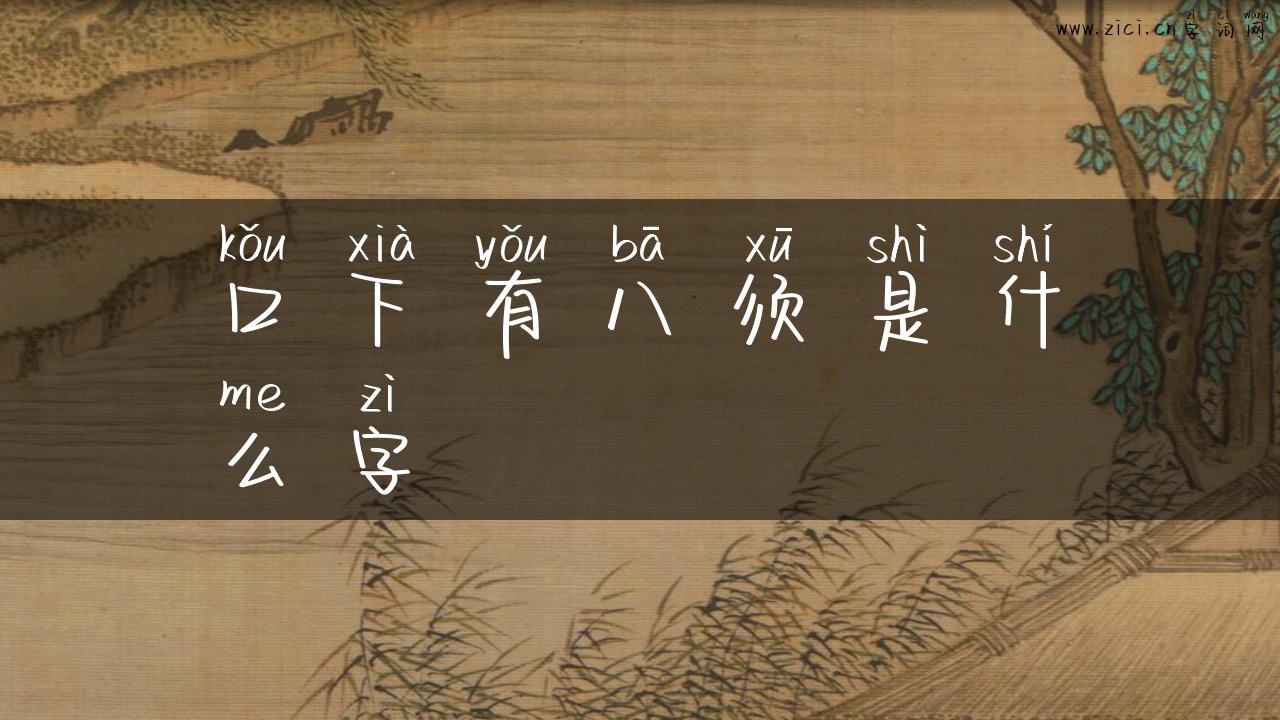 zì cí wǎng
www.zici.cn字词网
kǒu xià yǒu bā xū shì shí
口下有八须是什
me zì
么字